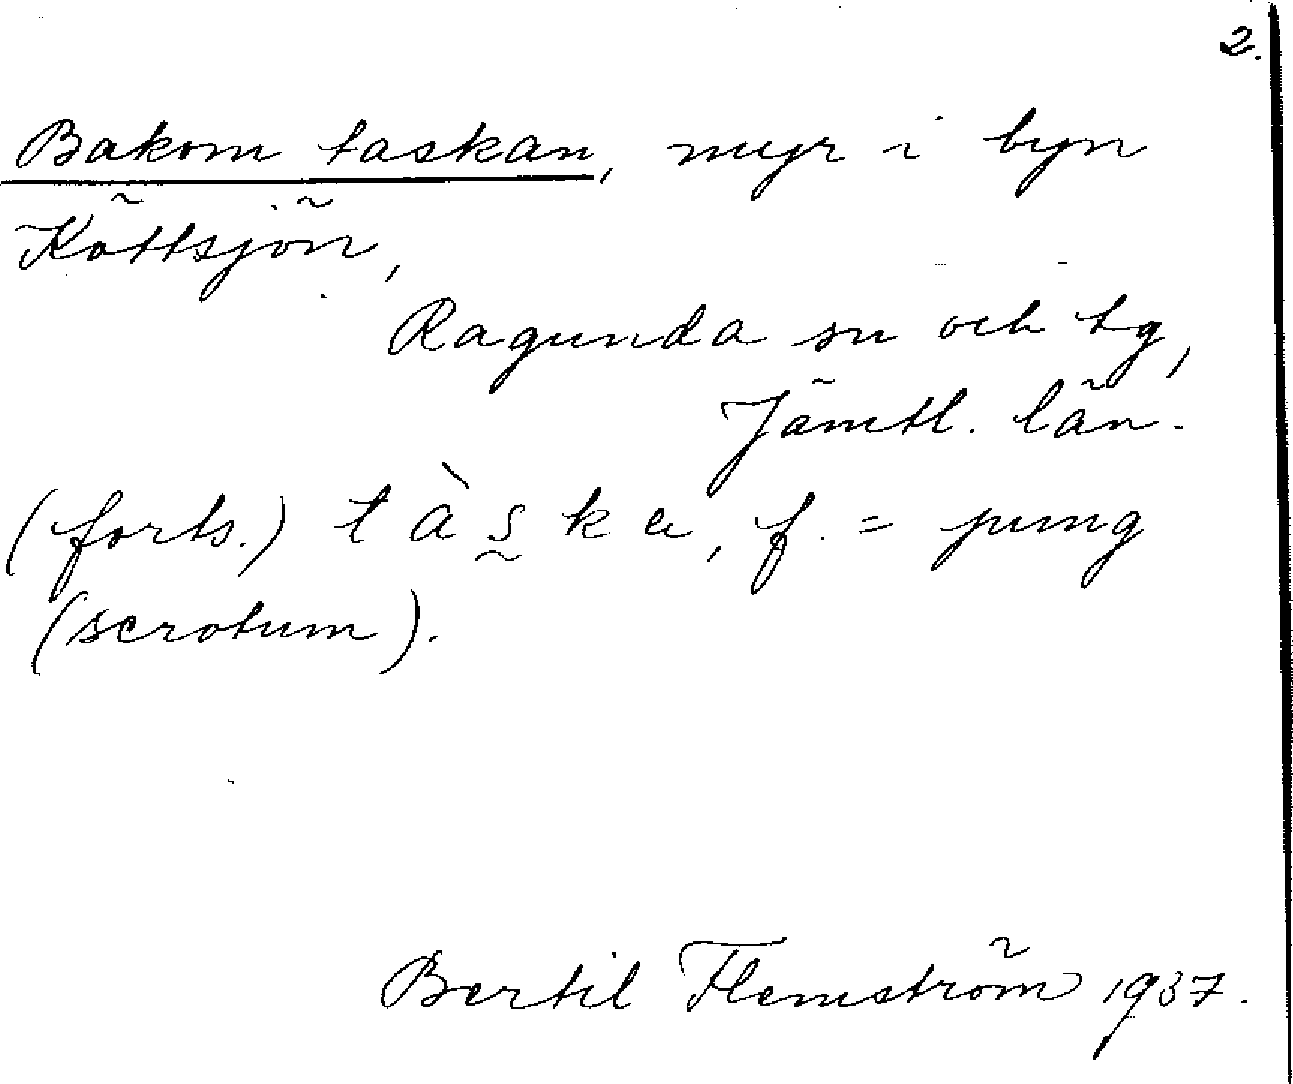 2.
Bakom taskan, myr i byn
Köttsjön,
Ragunda sn och tg,
Jämtl. län.
(forts.) t à s̰ k a, f. = pung
(scrotum).
Bertil Flemström 1937.